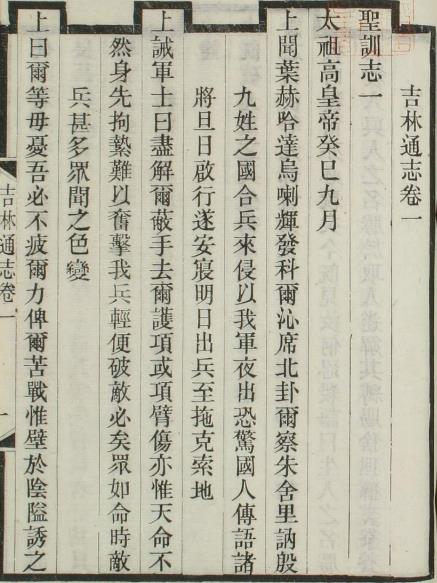 吉林通志卷一
聖訓志一
太祖高皇帝癸巳九月
上聞葉赫哈達烏喇輝發科爾沁席北卦爾察朱舍里訥殷
九姓之國合兵來侵以我軍夜出恐驚國人傳語諸
將旦日啟行遂安寢明日出兵至拖克索地
上誡軍士曰盡解爾蔽手去爾護項或項臂傷亦惟天命不
然身先拘縶難以奮擊我兵輕便破敵必矣眾如命時敵
兵甚多眾聞之色變
上曰爾等毋憂吾必不疲爾力俾爾苦戰惟壁於陰隘誘之
吉林通志卷一
一